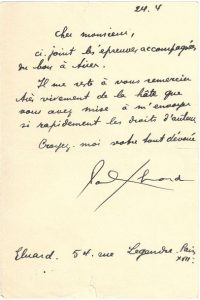 24.4
Cher monsieur,
ci-joint les épreuves accompagnées
du bon à tirer.
Il me reste à vous remercier
très vivement de la hâte que
vous avez mise à m'envoyer
si rapidement les droits d'auteur
Croyez-moi votre tout dévoué
Paul Eluard
Eluard. 54. rue Legendre. Paris
XVII.